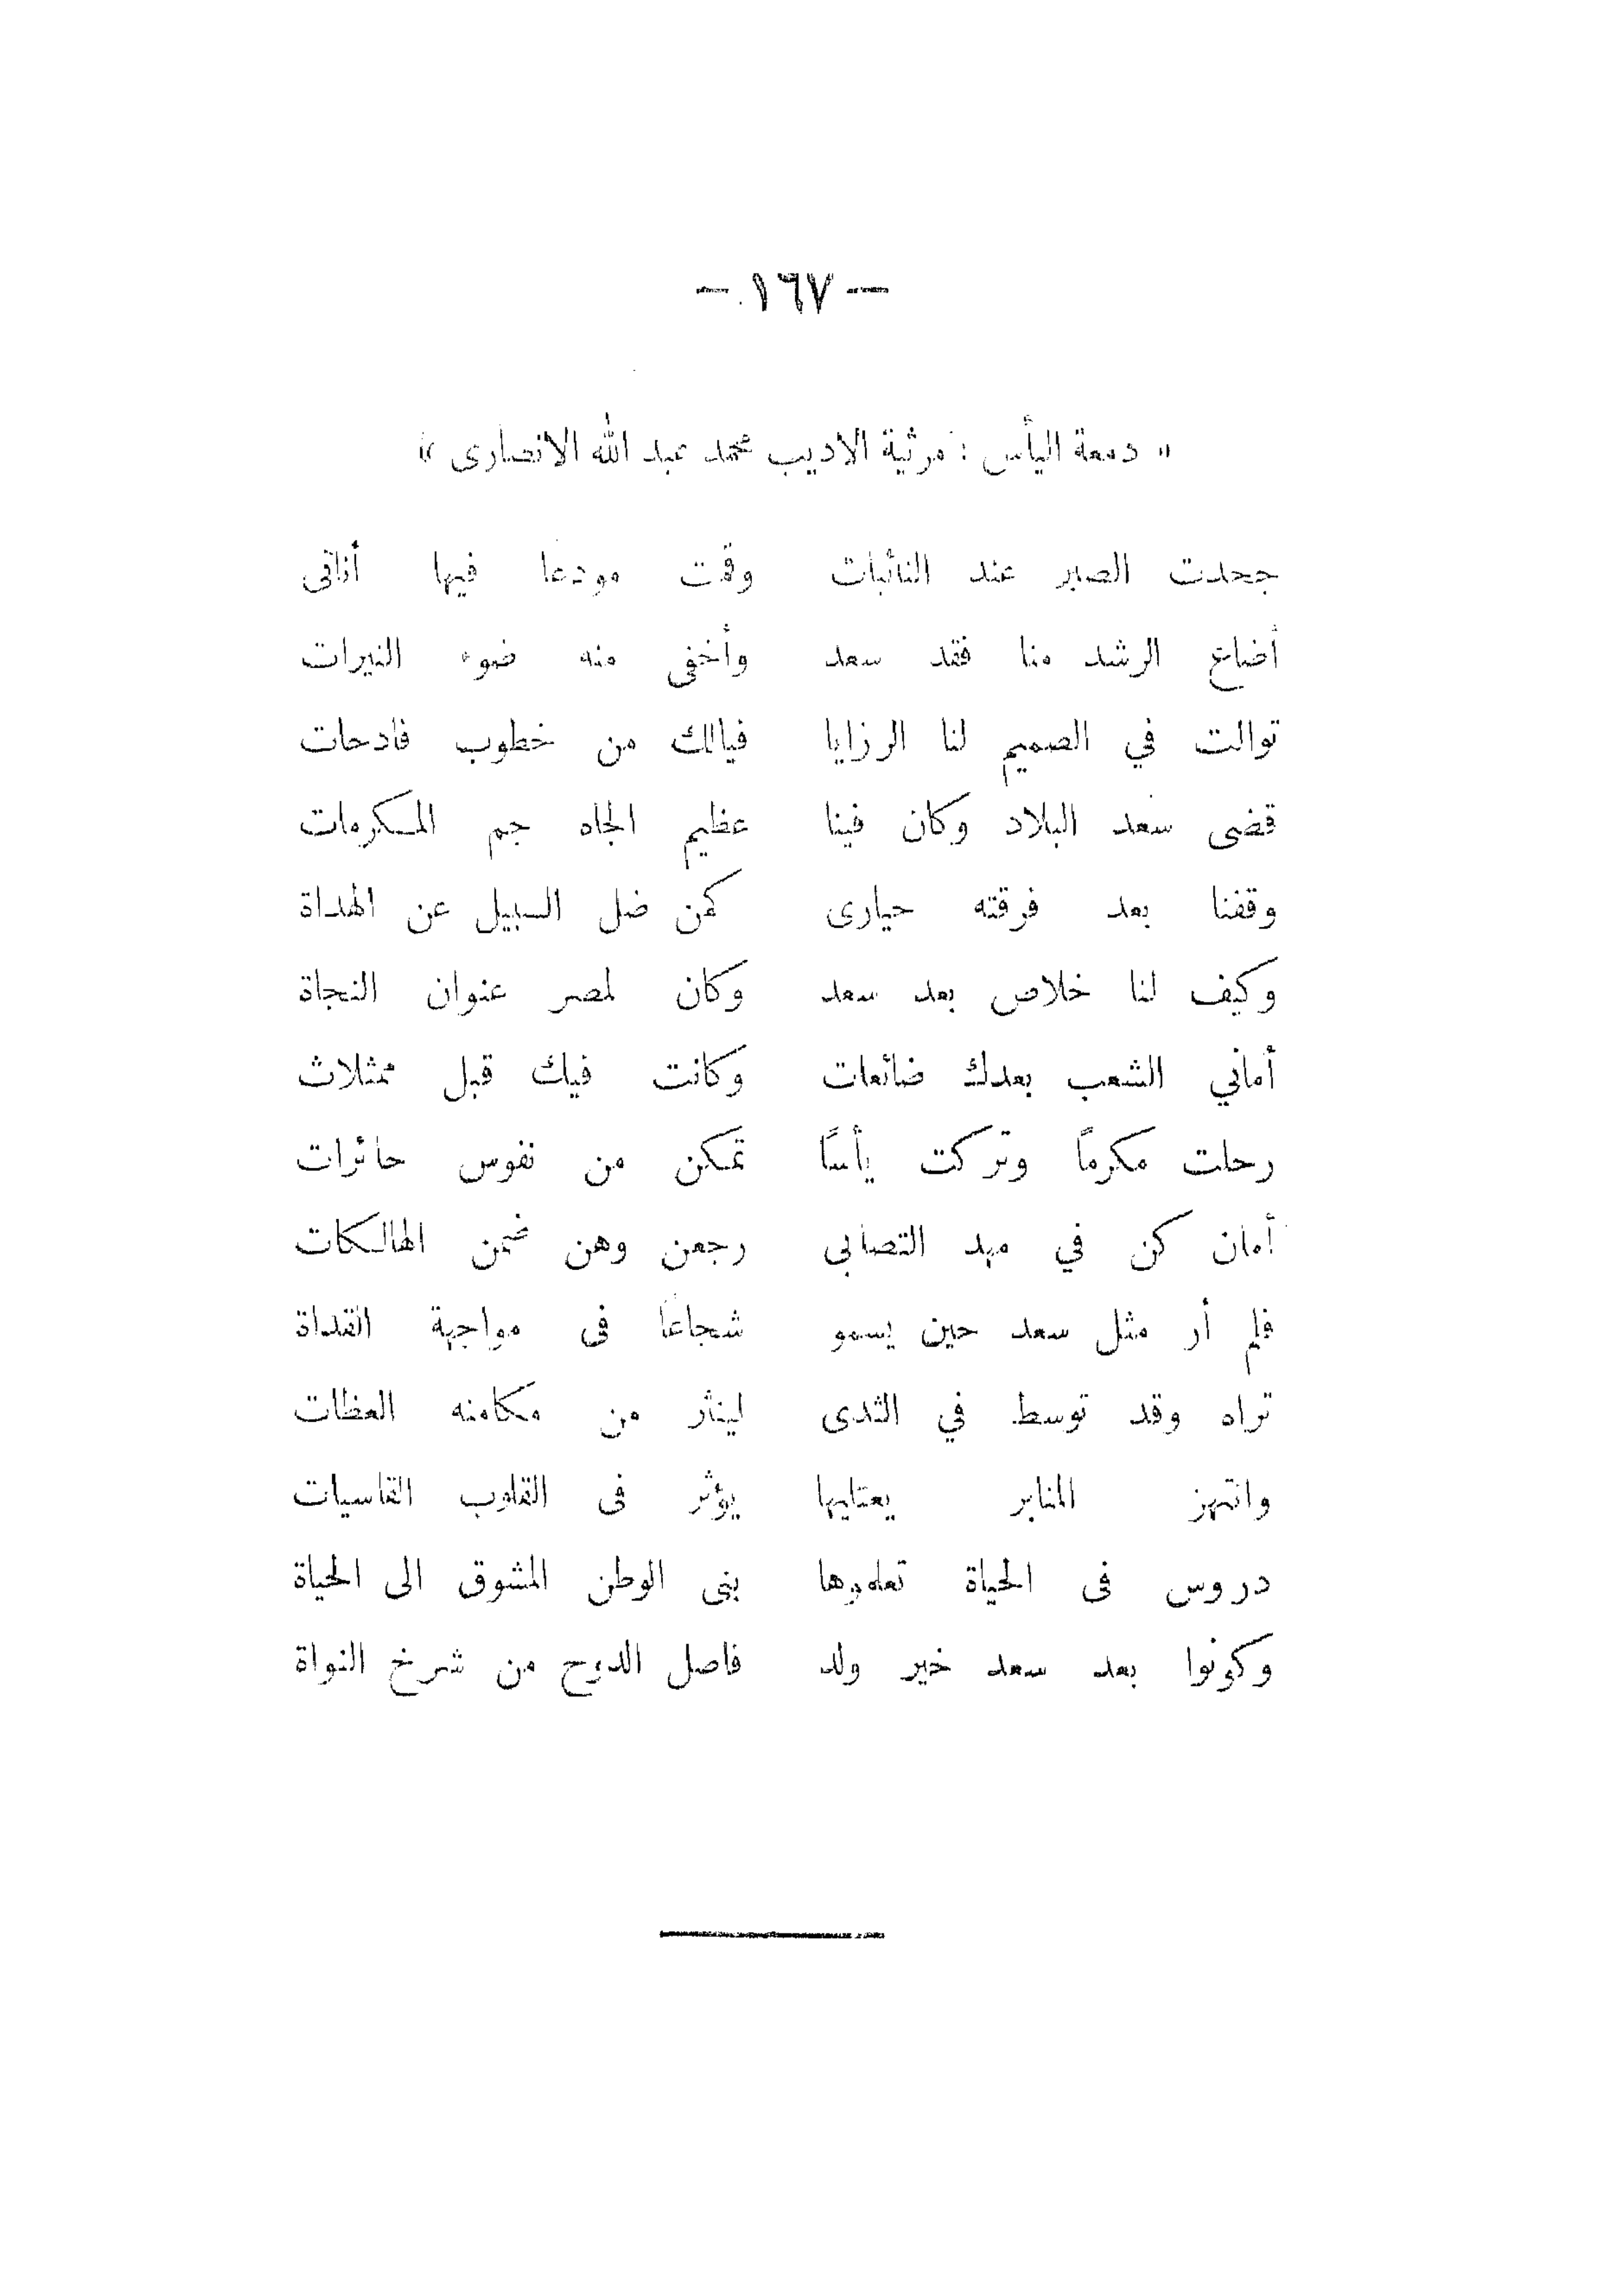 — ١٦٧ —
« دمعة اليأس : مرثية الاديب محمد عبد الله الانصارى »
جحدت الصبر عند النائبات وقمت مودعا فيها أناتى
أضاع الرشد منا فقد سعد وأخفى منه ضوء النيرات
توالت في الصميم لنا الرزايا فيالك من خطوب فادحات
قضى سعد البلاد وكان فينا عظيم الجاه جم المكرمات
وقفنا بعد فرقته حيارى كمن ضل السبيل عن الهداة
وكيف لنا خلاص بعد سعد وكان لمصر عنوان النجاة
أماني الشعب بعدك ضائعات وكانت فيك قبل ممثلات
رحلت مكرماً وتركت يأساً تمكن من نفوس حائرات
أمان كن في مهد التصابى رجعن وهن ضمن الهالكات
فلم أر مثل سعد حين يسمو شجاعا فى مواجهة القداة
تراه وقد توسط في الندى لينثر من مكامنه العظات
المنابر يعتليها يؤثر فى القلوب القاسيات
دروس فى الحياة تعلموها بنى الوطن المشوق الى الحياة
وكونوا بعد سعد خير ولد فاصل الدوح من شرخ النواة